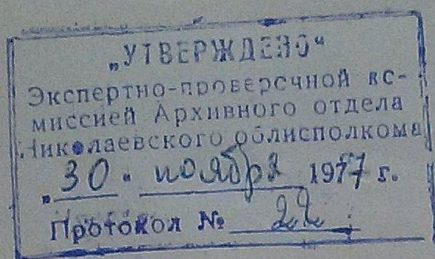 „УТВЕРЖДЕНО“
Экспертно-проверочной ко-
миссией Архивного отдела
Николаевского облисполкома
„30“ ноября 1977 г.
Протокол № 22